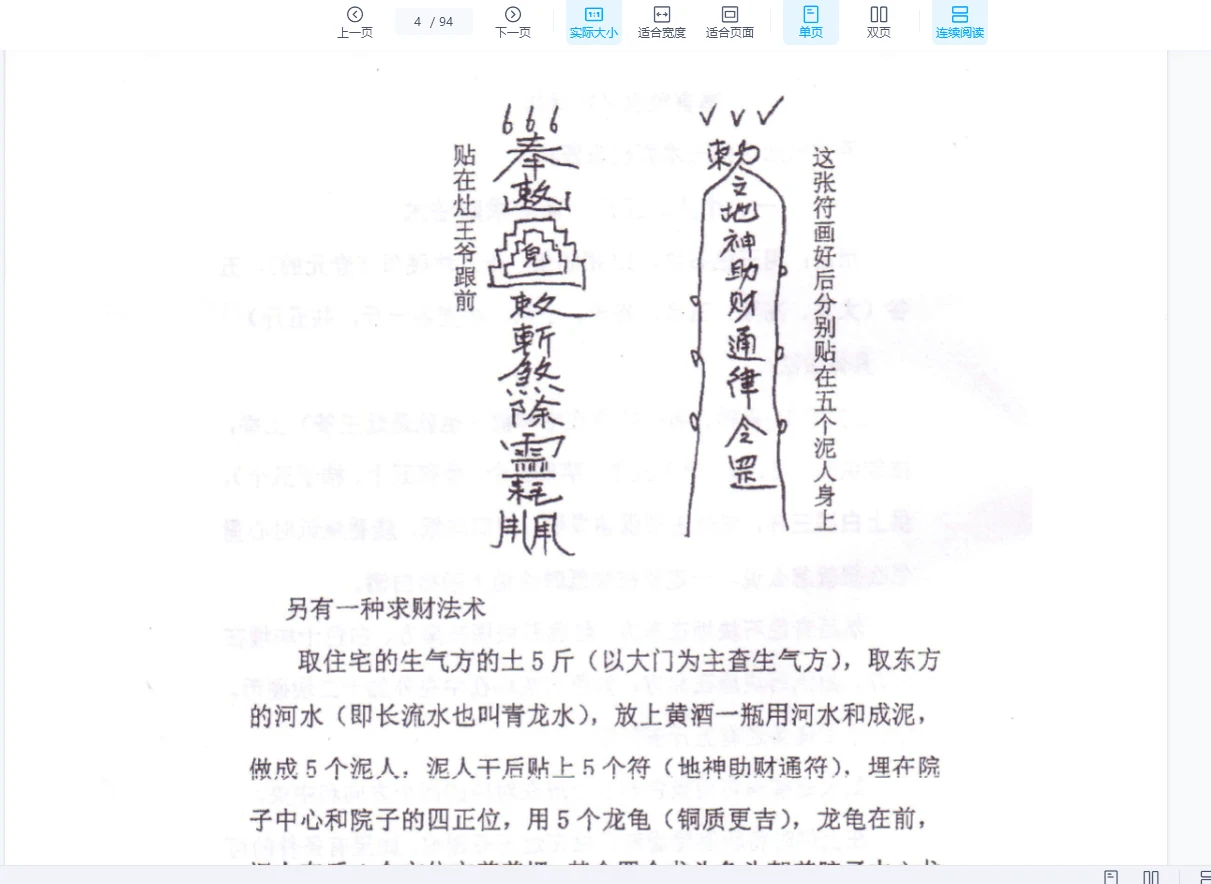 上一页
4 / 94
下一页
1:1
实际大小
适合宽度
适合页面
单页
双页
连续阅读
666
贴在灶王爷跟前
奉
敕
鬼
敕
斬
煞
除
靈
耗
勅
令
地
神
助
财
通
律
令
罡
这张符画好后分别贴在五个泥人身上
另有一种求财法术
取住宅的生气方的土5斤（以大门为主查生气方），取东方
的河水（即长流水也叫青龙水），放上黄酒一瓶用河水和成泥，
做成5个泥人，泥人干后贴上5个符（地神助财通符），埋在院
子中心和院子的四正位，用5个龙龟（铜质更吉），龙龟在前，